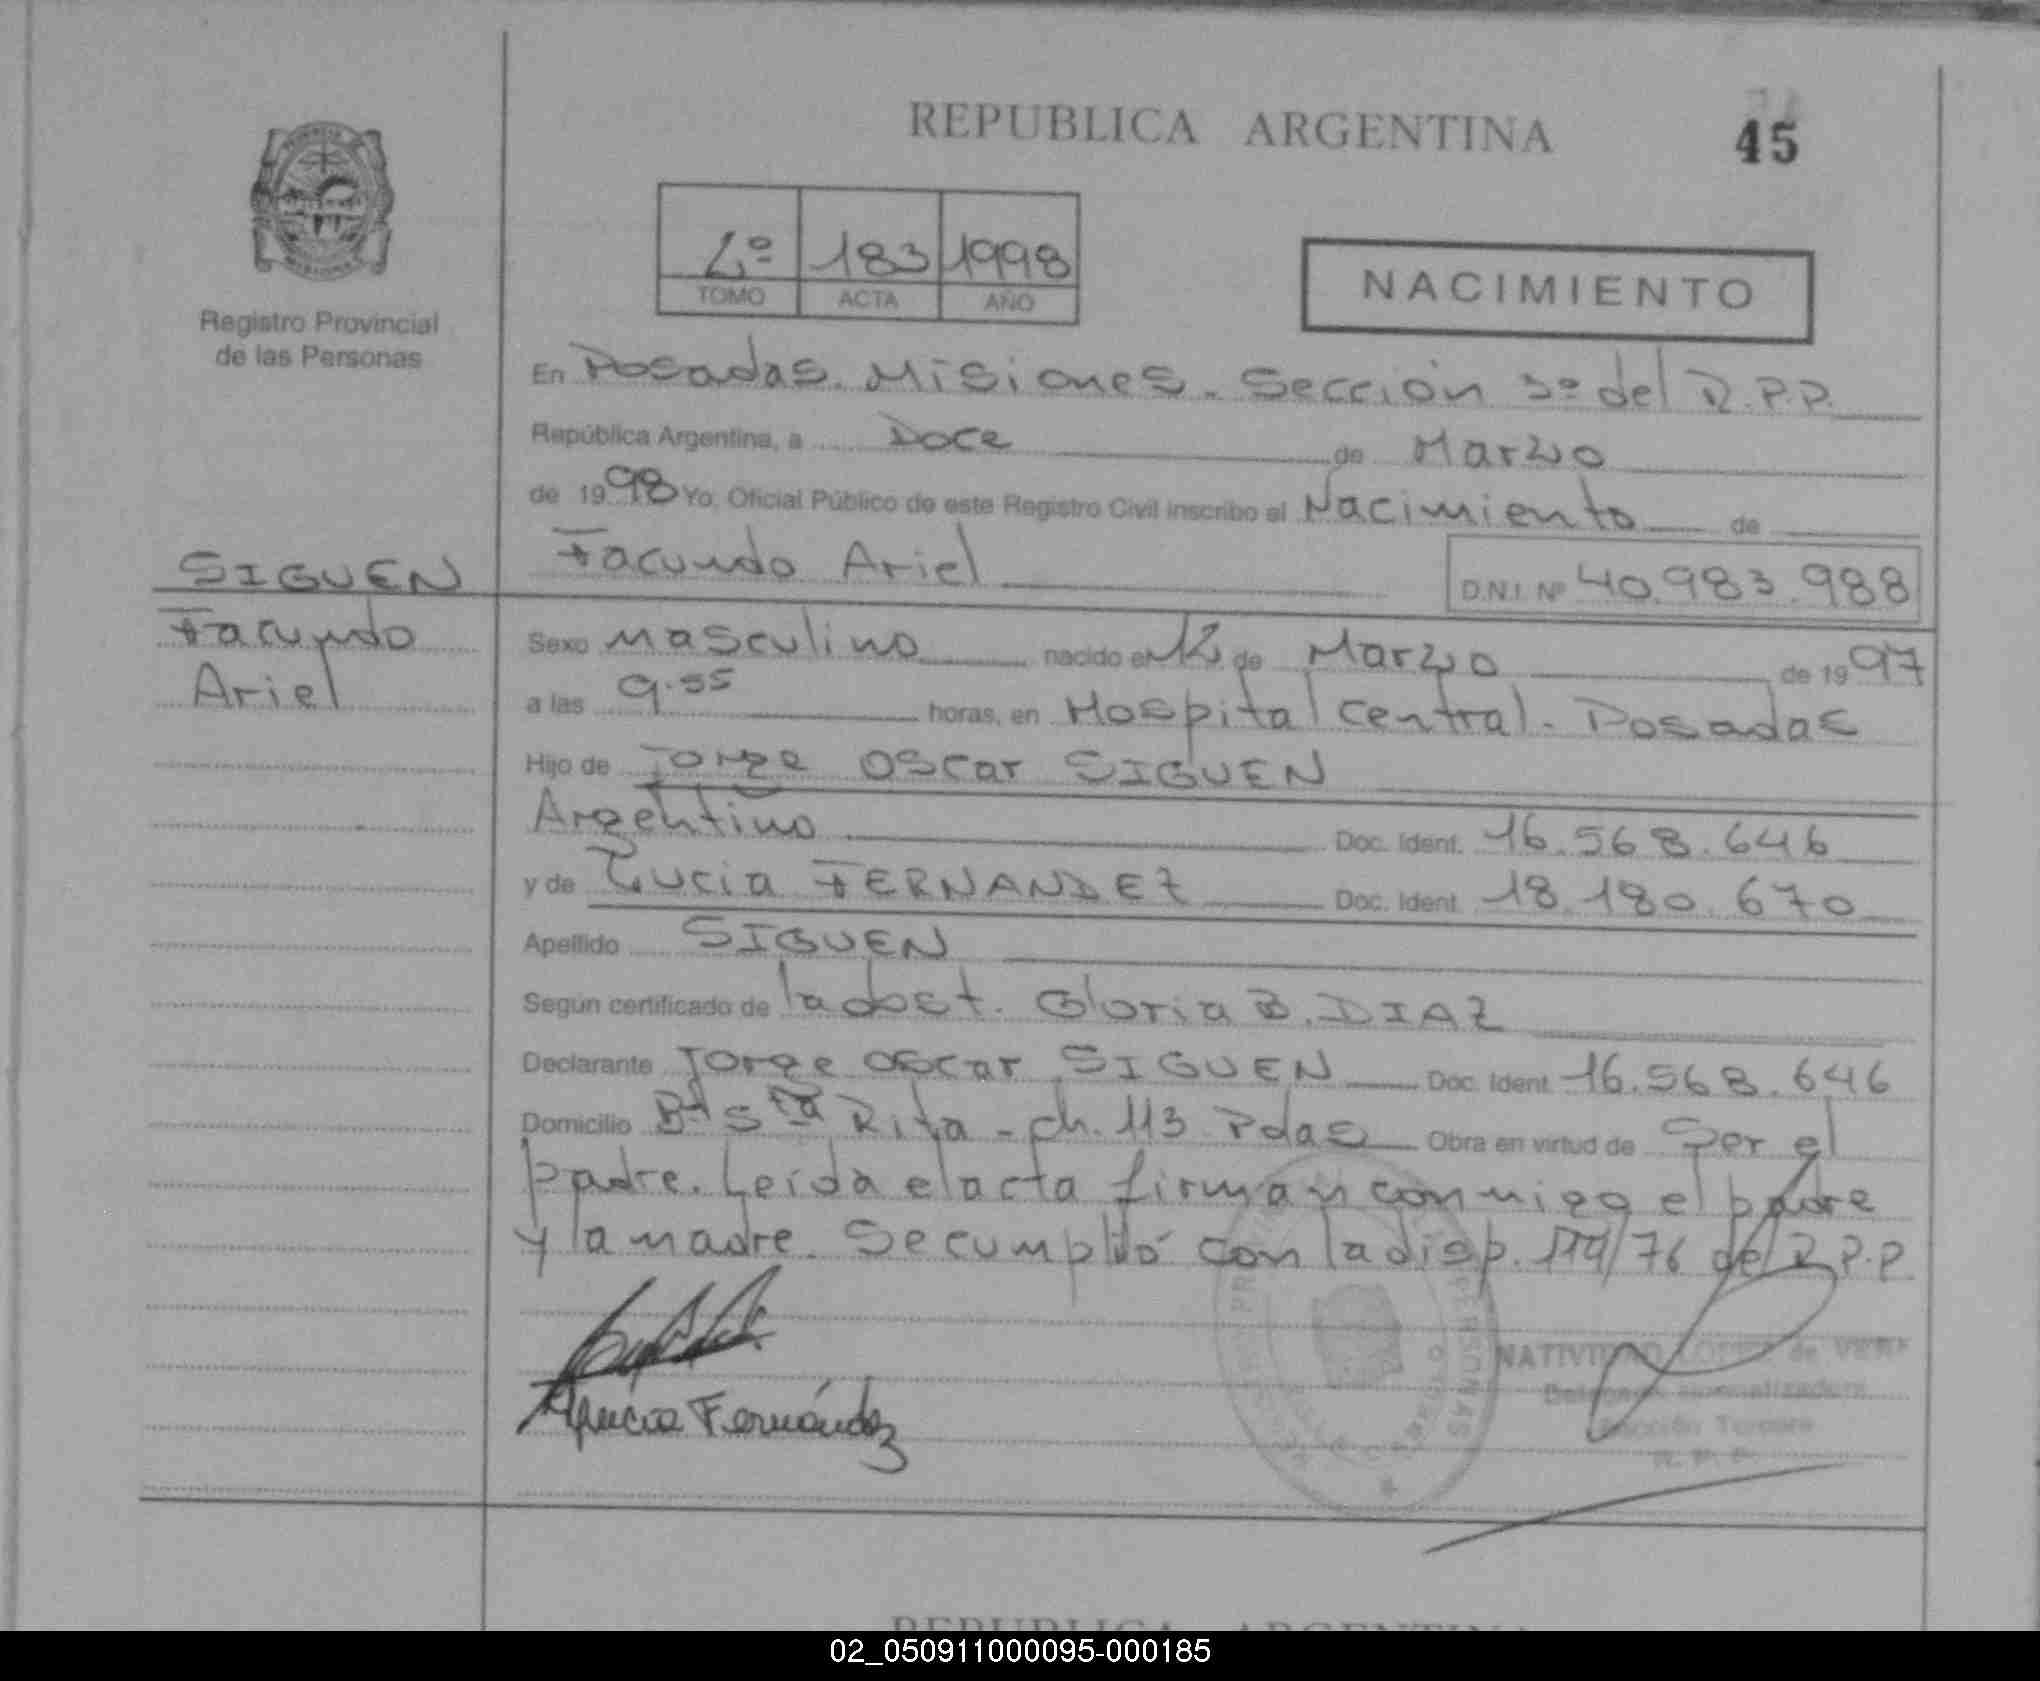 REPUBLICA ARGENTINA
45
2º 183 1998
TOMO ACTA AÑO
NACIMIENTO
Registro Provincial
de las Personas
En Posadas. Misiones. Sección 3º del R.P.P.
República Argentina, a Doce de Marzo
de 1998 Yo, Oficial Público de este Registro Civil inscribo el Nacimiento de
SIGUEN
Facundo
Ariel
Facundo Ariel D.N.I. Nº 40.983.988
Sexo masculino nacido el 12 de Marzo de 1997
a las 9.55 horas, en Hospital Central. Posadas
Hijo de Jorge Oscar SIGUEN
Argentino Doc. Ident. 16.568.646
y de Lucia FERNANDEZ Doc. Ident. 18.180.670
Apellido SIGUEN
Según certificado de la obst. Gloria B. DIAZ
Declarante Jorge Oscar SIGUEN Doc. Ident. 16.568.646
Domicilio Bº Sta Rita - ch. 113 Pdas Obra en virtud de Ser el
padre. Leída el acta firman conmigo el padre
y la madre. Se cumplió con la disp. 114/76 del R.P.P.
Lucia Fernández
NATIVIDAD LOPEZ de VERA
Delegada Normalizadora
Sección Tercera
R. P. P.
REPUBLICA ARGENTINA
02_050911000095-000185